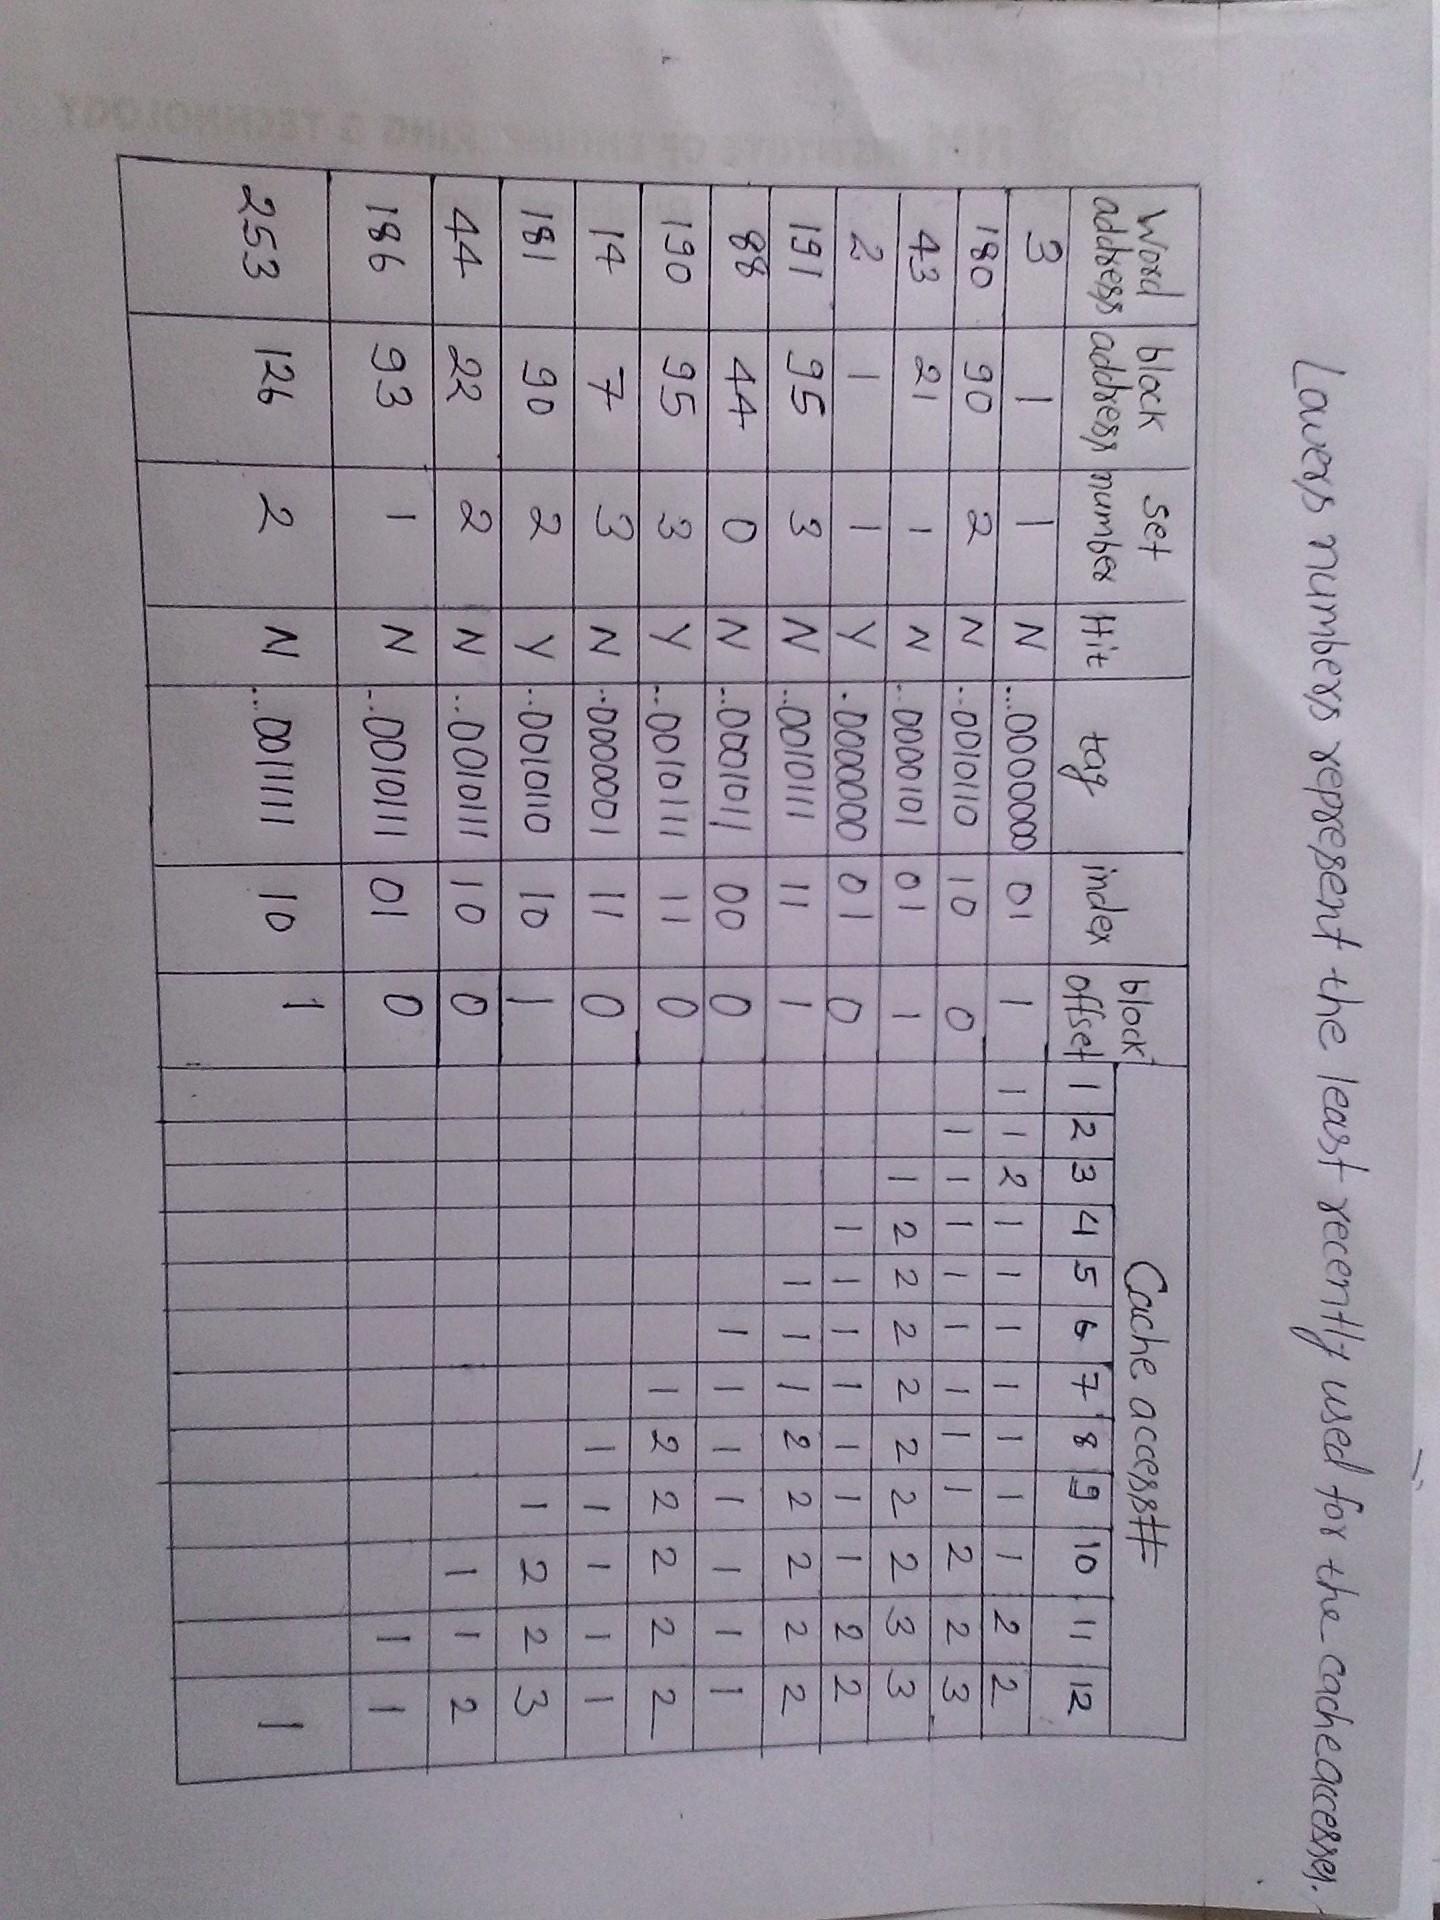 Lowers numbers represent the least recently used for the cacheaccesses.
Word address block address set number Hit tag index block offset Cache access#
1 2 3 4 5 6 7 8 9 10 11 12
3 1 1 N ...0000000 01 1 1 1 2 1 1 1 1 1 1 1 2 2
180 90 2 N ..0010110 10 0 1 1 1 1 1 1 1 1 2 2 3
43 21 1 N ..0000101 01 1 1 2 2 2 2 2 2 2 3 3
2 1 1 Y .0000000 01 0 1 1 1 1 1 1 1 2 2
191 95 3 N ..0010111 11 1 1 1 1 2 2 2 2 2
88 44 0 N ..0001011 00 0 1 1 1 1 1 1 1
190 95 3 Y ..0010111 11 0 1 2 2 2 2 2
14 7 3 N ..0000001 11 0 1 1 1 1 1
181 90 2 Y ..0010110 10 1 1 2 2 3
44 22 2 N ...0010111 10 0 1 1 2
186 93 1 N ..0010111 01 0 1 1
253 126 2 N ..0011111 10 1 1